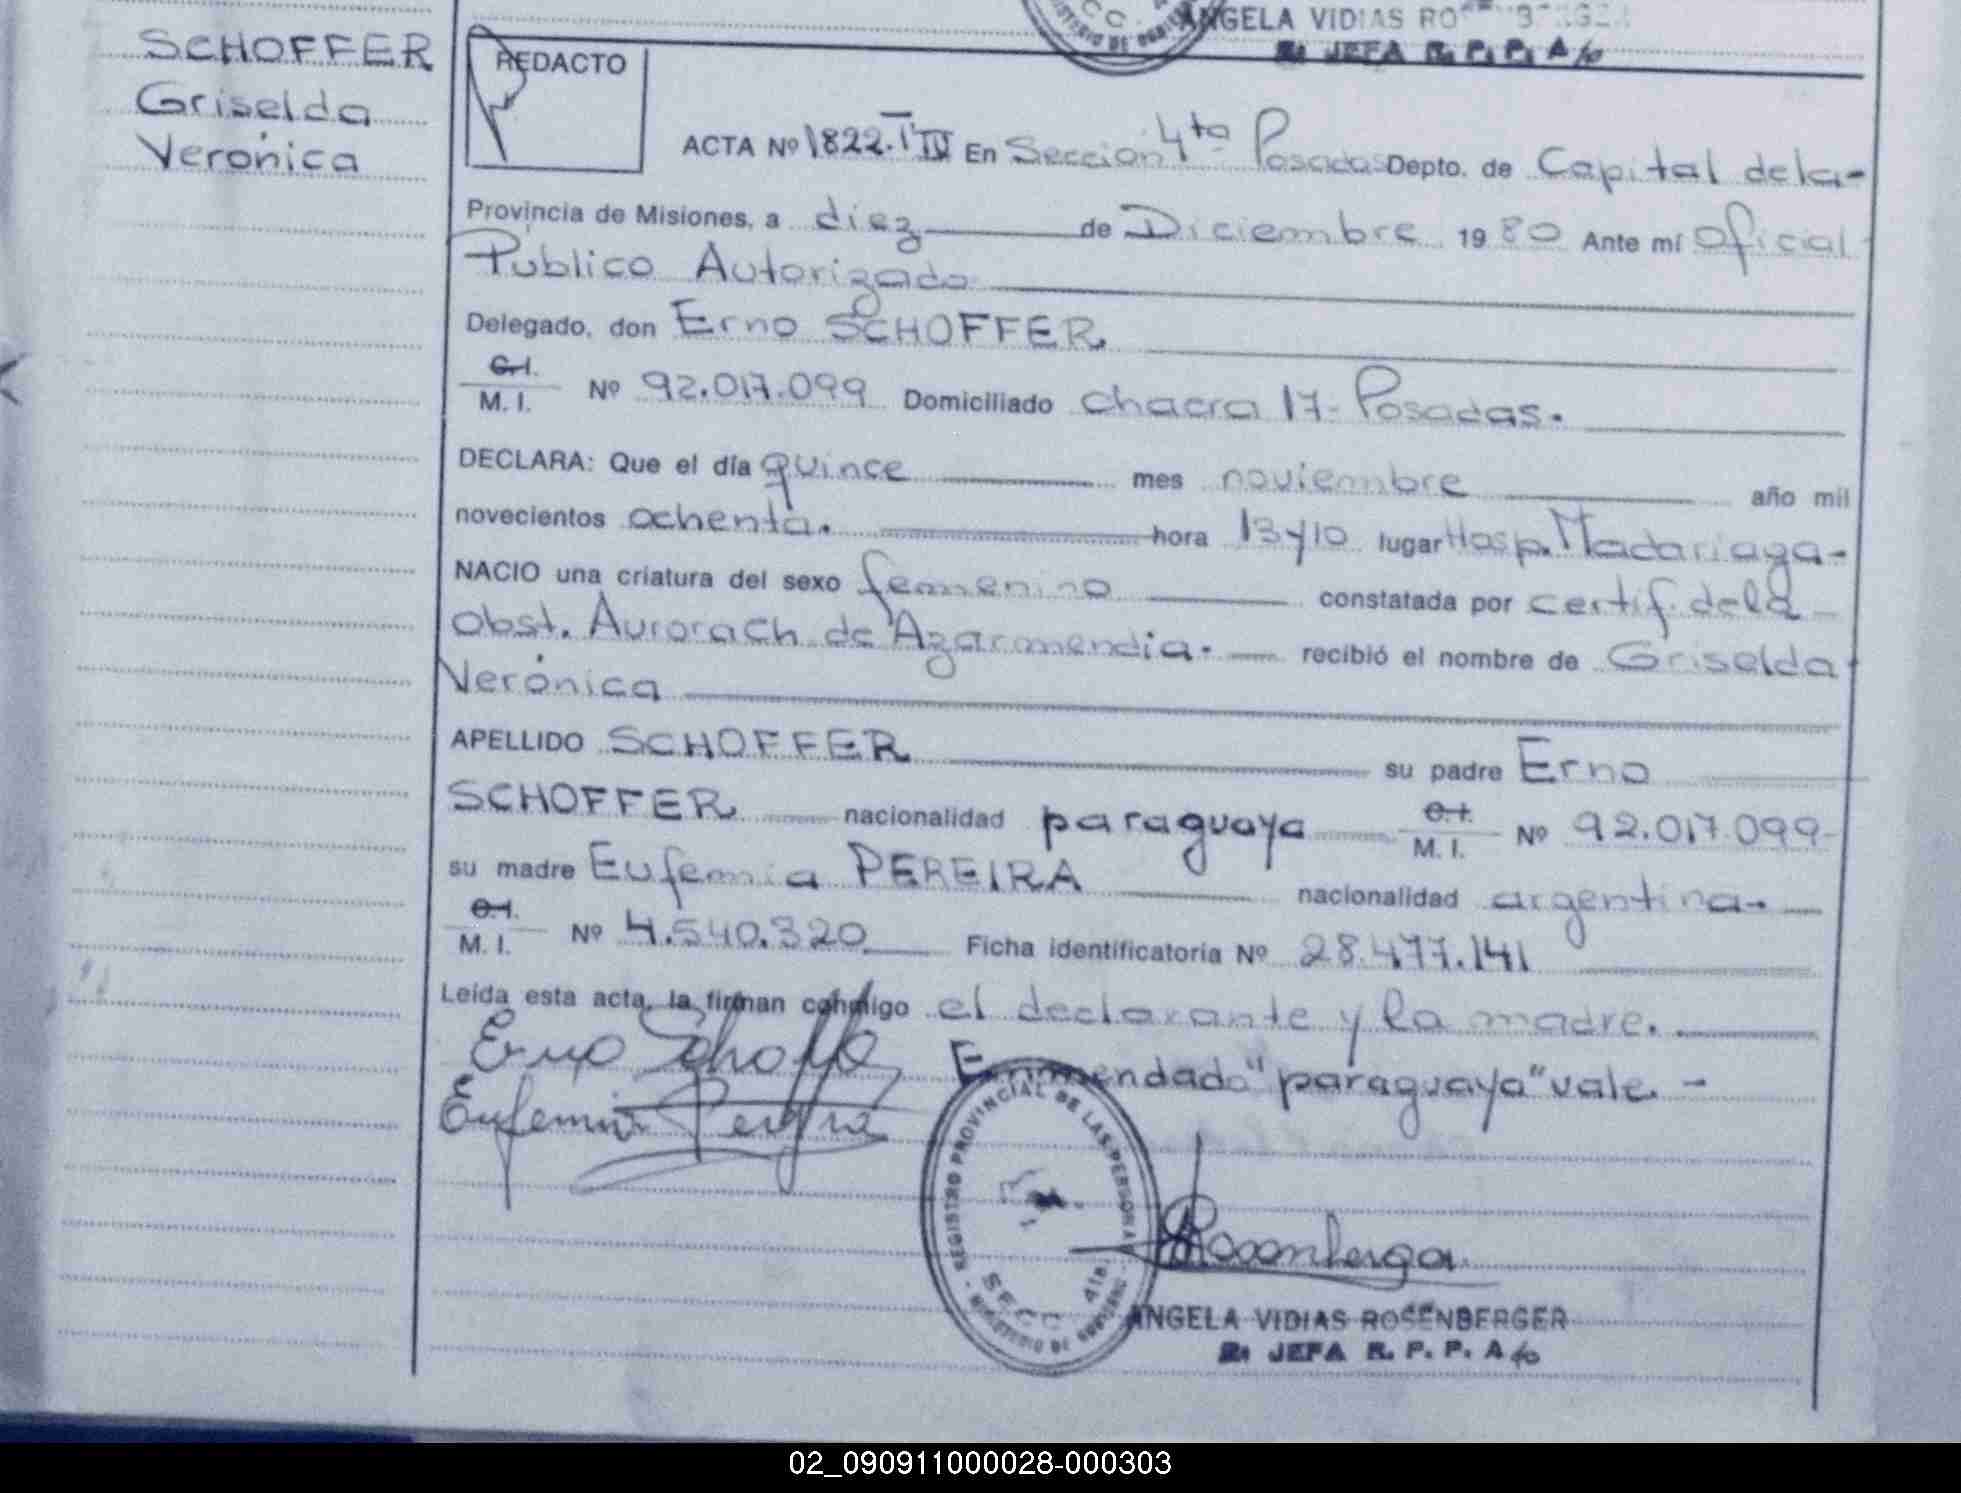 ANGELA VIDIAS RO
JEFA R. P. P. A/c
SCHOFFER
Griselda
Verónica
REDACTO
ACTA Nº 1822. T IV En Sección 4ta Posadas Depto. de Capital de la-
Provincia de Misiones, a diez de Diciembre 1980 Ante mí Oficial
Público Autorizado
Delegado, don Erno SCHOFFER.
C.I.
M. I. Nº 92.017.099 Domiciliado chacra 17- Posadas.
DECLARA: Que el día quince mes noviembre año mil
novecientos ochenta. hora 13y10 lugar Hosp. Madariaga-
NACIO una criatura del sexo femenino constatada por certif. de la
obst. Aurora Ch. de Azarmendia. recibió el nombre de Griselda
Verónica
APELLIDO SCHOFFER su padre Erno
SCHOFFER nacionalidad paraguaya C.I. M. I. Nº 92.017.099
su madre Eufemia PEREIRA nacionalidad argentina.
C.I.
M. I. Nº 4.540.320 Ficha identificatoria Nº 28.477.141
Leída esta acta, la firman conmigo el declarante y la madre.
Erno Schoffer
Enmendado "paraguaya" vale. -
Eufemia Pereira
REGISTRO PROVINCIAL DE LAS PERSONAS
SECC. 4ta
MINISTERIO DE GOBIERNO
ANGELA VIDIAS ROSENBERGER
JEFA R. P. P. A/c
02_090911000028-000303